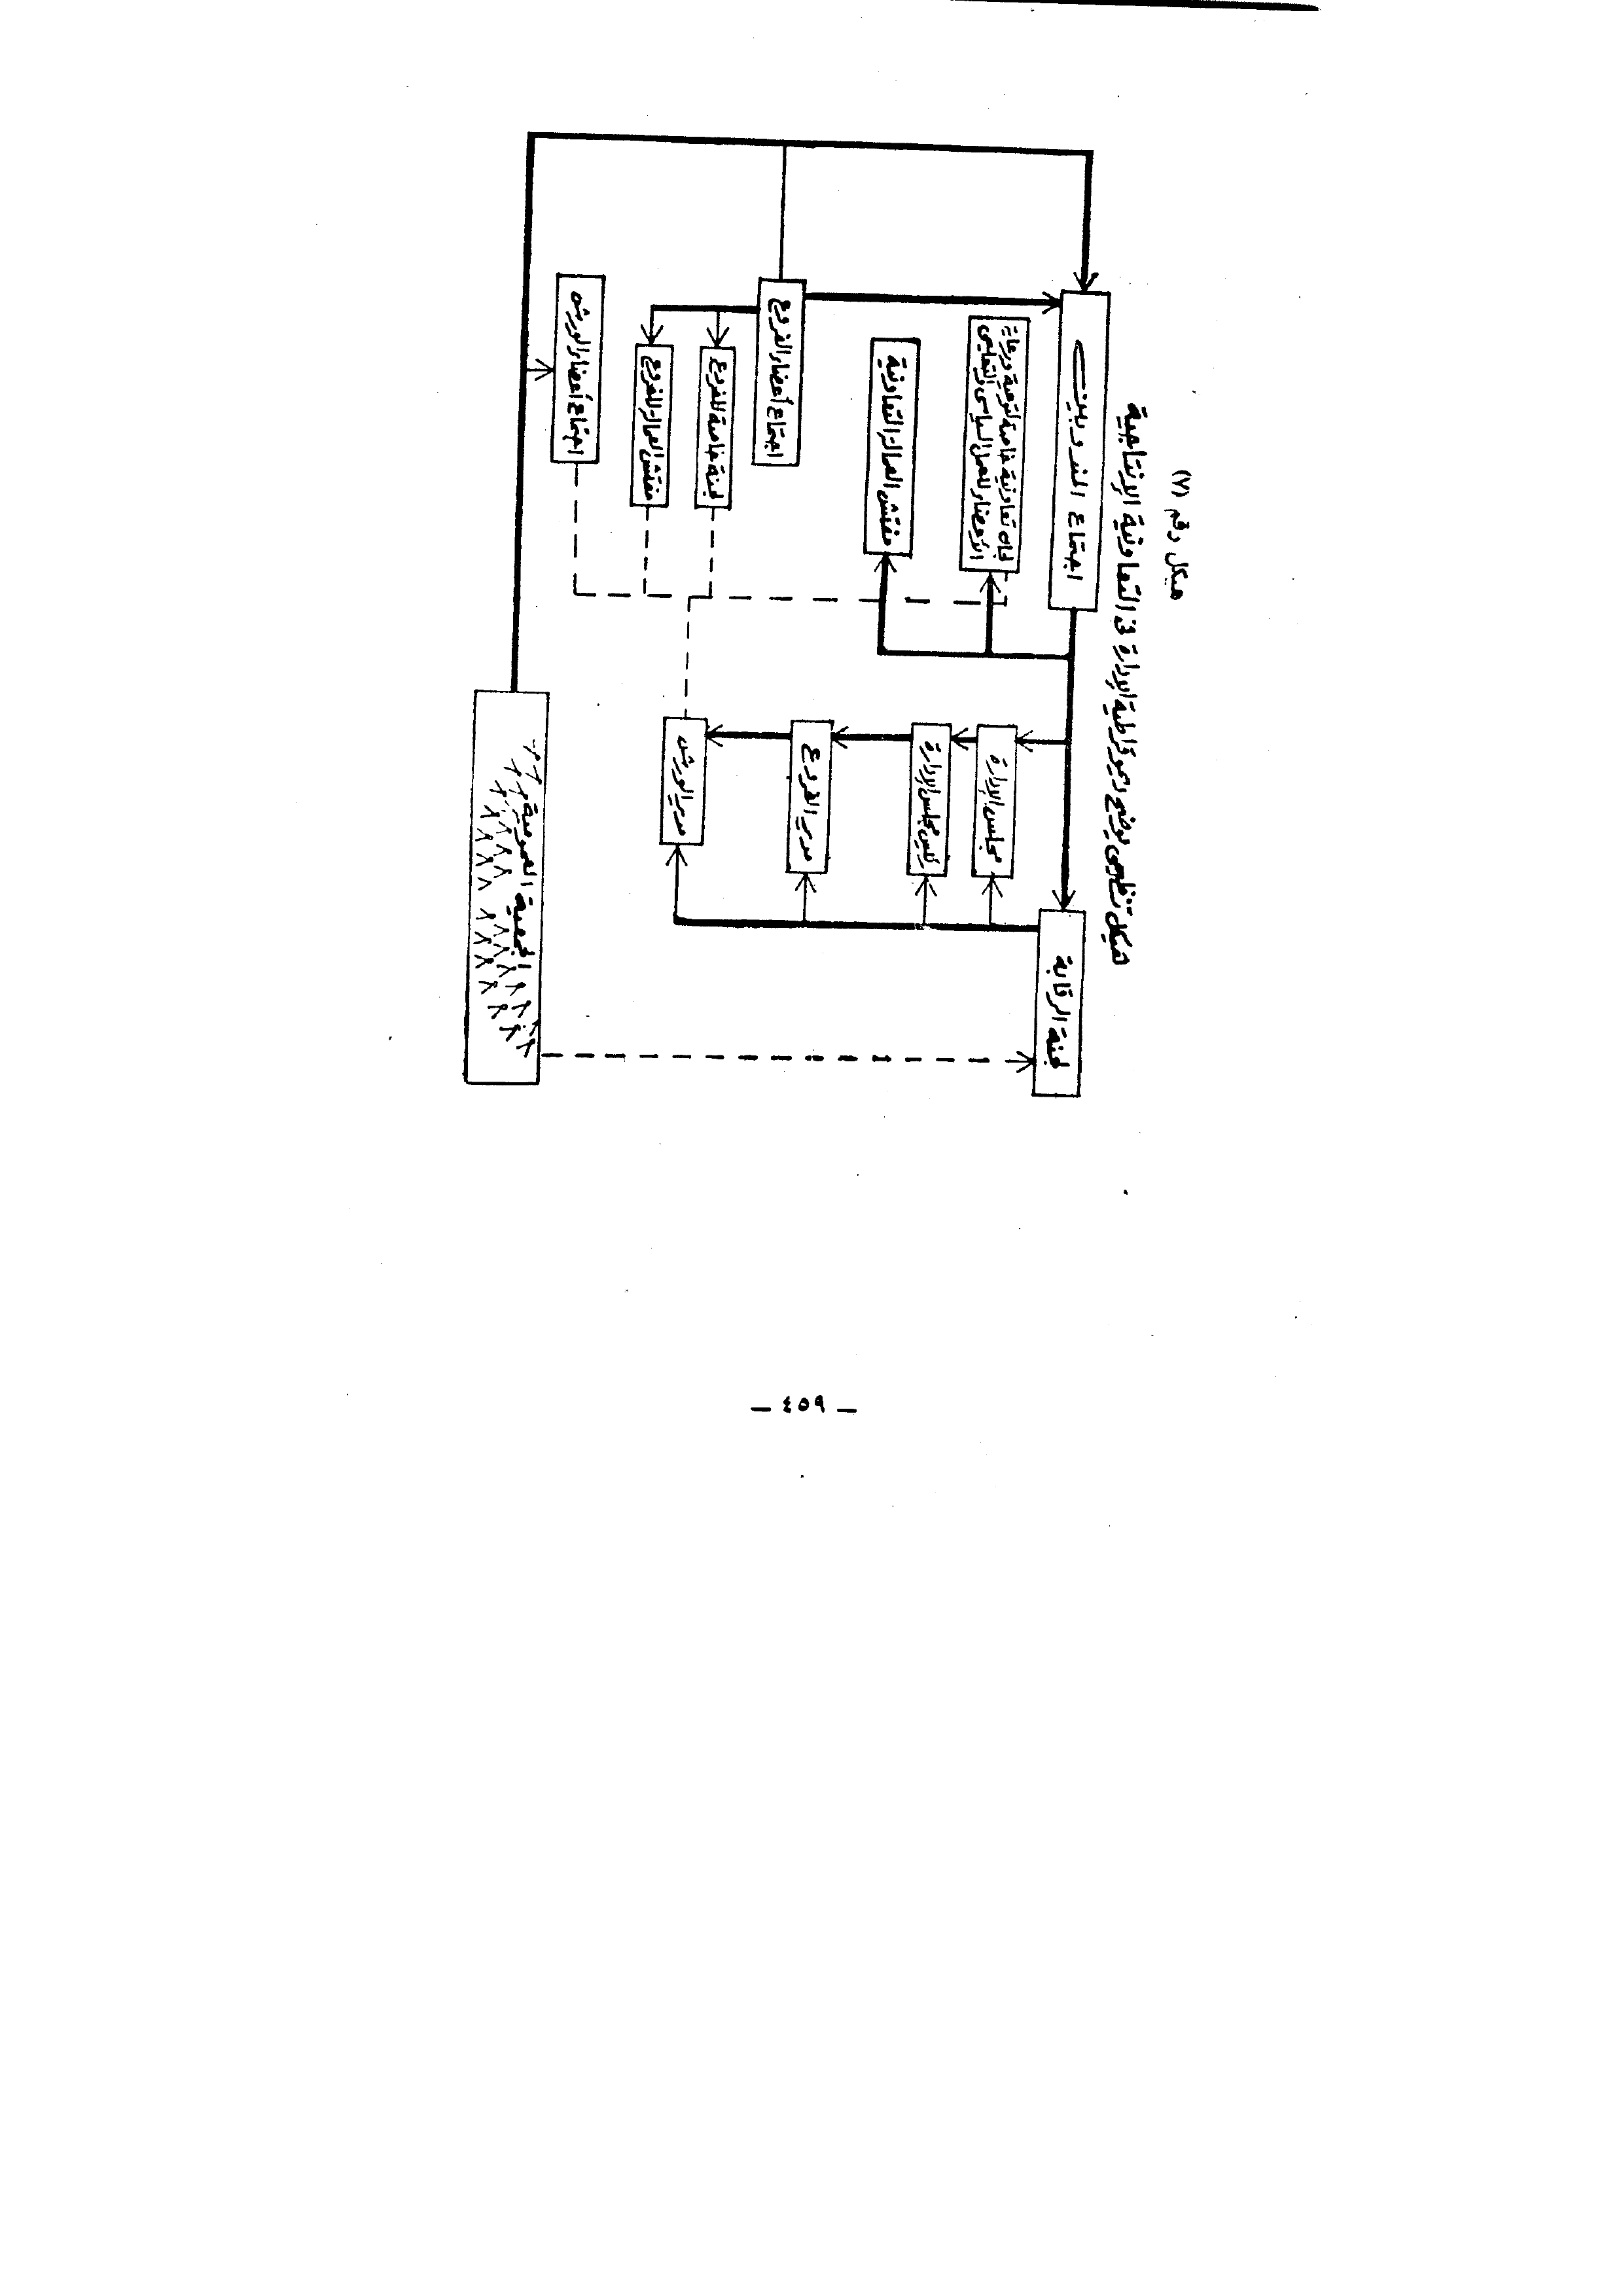 هيكل رقم (٧)
هيكل تنظيمى يوضح ديموقراطية الإدارة فى التعاونية الإنتاجية
اجتماع المندوبين
لجنة الرقابة
لجان تعاونية خاصة لتوعية ورعاية
الأعضاء للعمل السياسى والتعليمى
مفتش العمال التعاونية
مجلس الإدارة
رئيس مجلس الإدارة
مدير الفروع
مدير الورش
اجتماع أعضاء الفروع
لجنة خاصة للفروع
مفتش العمال للفروع
اجتماع أعضاء الورش
الجمعية العمومية
— ٤٥٩ —